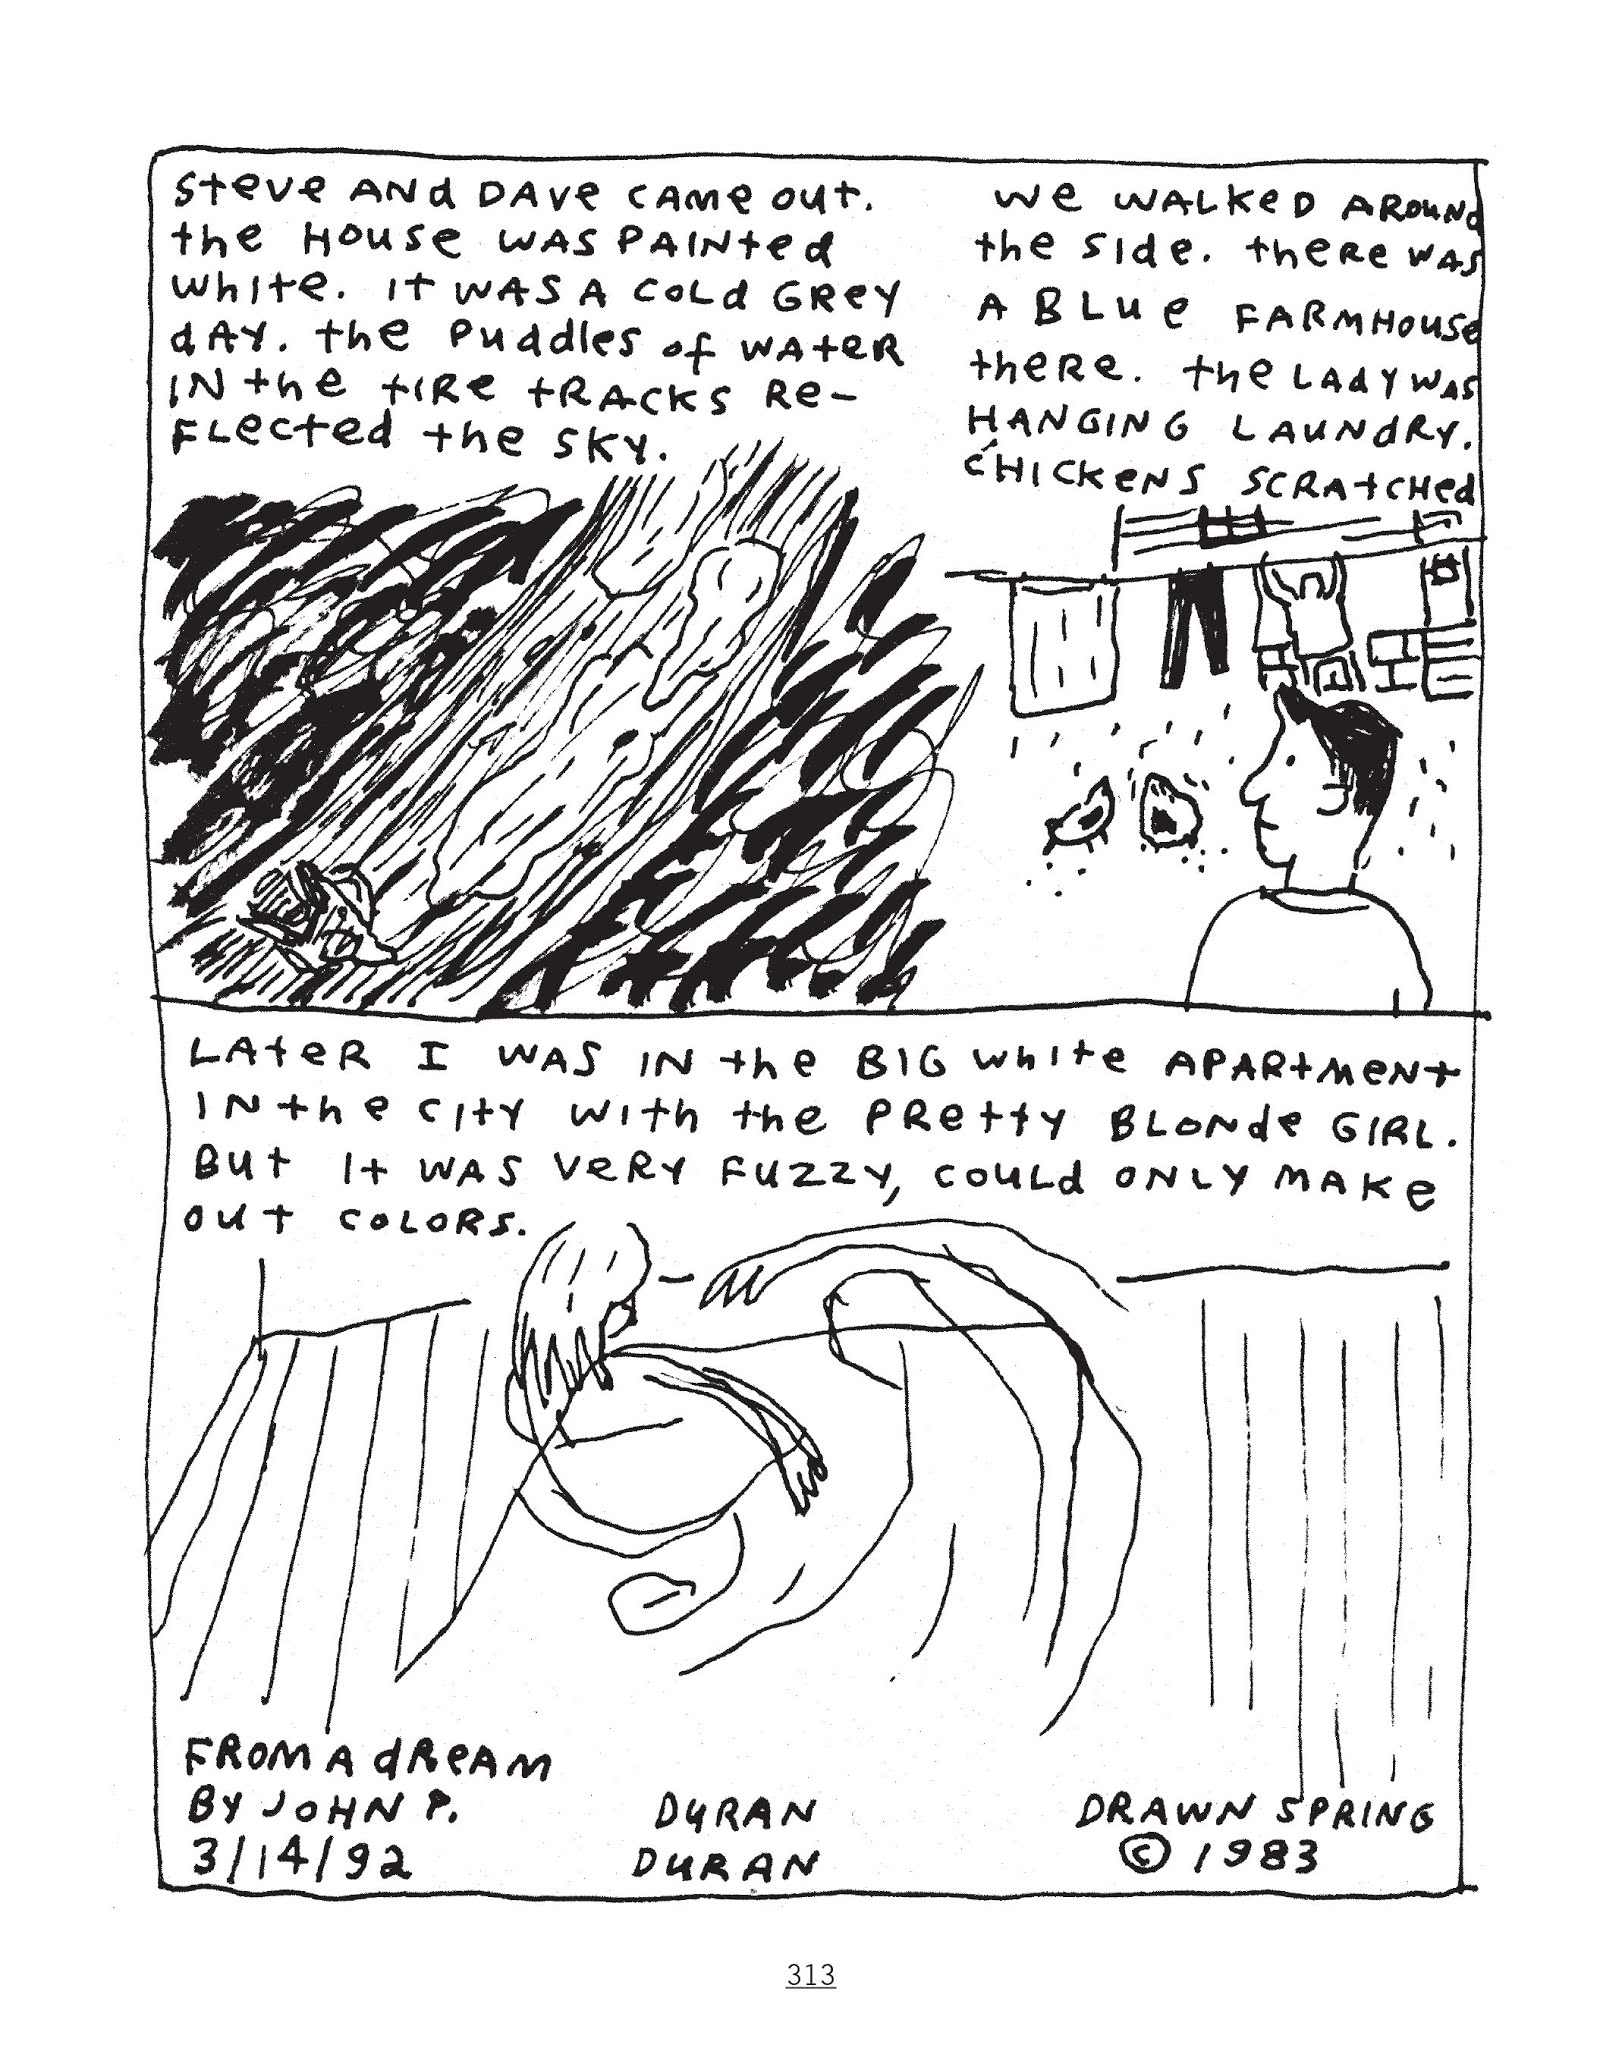 Steve AND DAVE CAME OUT.
the HOUSE WAS PAINted
white. It WAS A COLd GREY
dAY. the Puddles of WAteR
IN the tIRE tRACKS Re-
FLected the SKY.
We WALKeD AROUNd
the SIde. theRe WAS
A BLUe FARMHOUSe
theRe. the LAdY WAS
HANGING LAUNdRY.
CHICKeNS SCRAtCHed
LAteR I WAS IN the BIG white APARtMeNt
IN the CItY WIth the PRettY BLONde GIRL.
But It WAS VeRY FUZZY, COULd ONLY MAKe
OUt COLORS.
FROM A dReAM
BY JOHN P.
3/14/92
DURAN
DURAN
DRAWN SPRING
© 1983
313